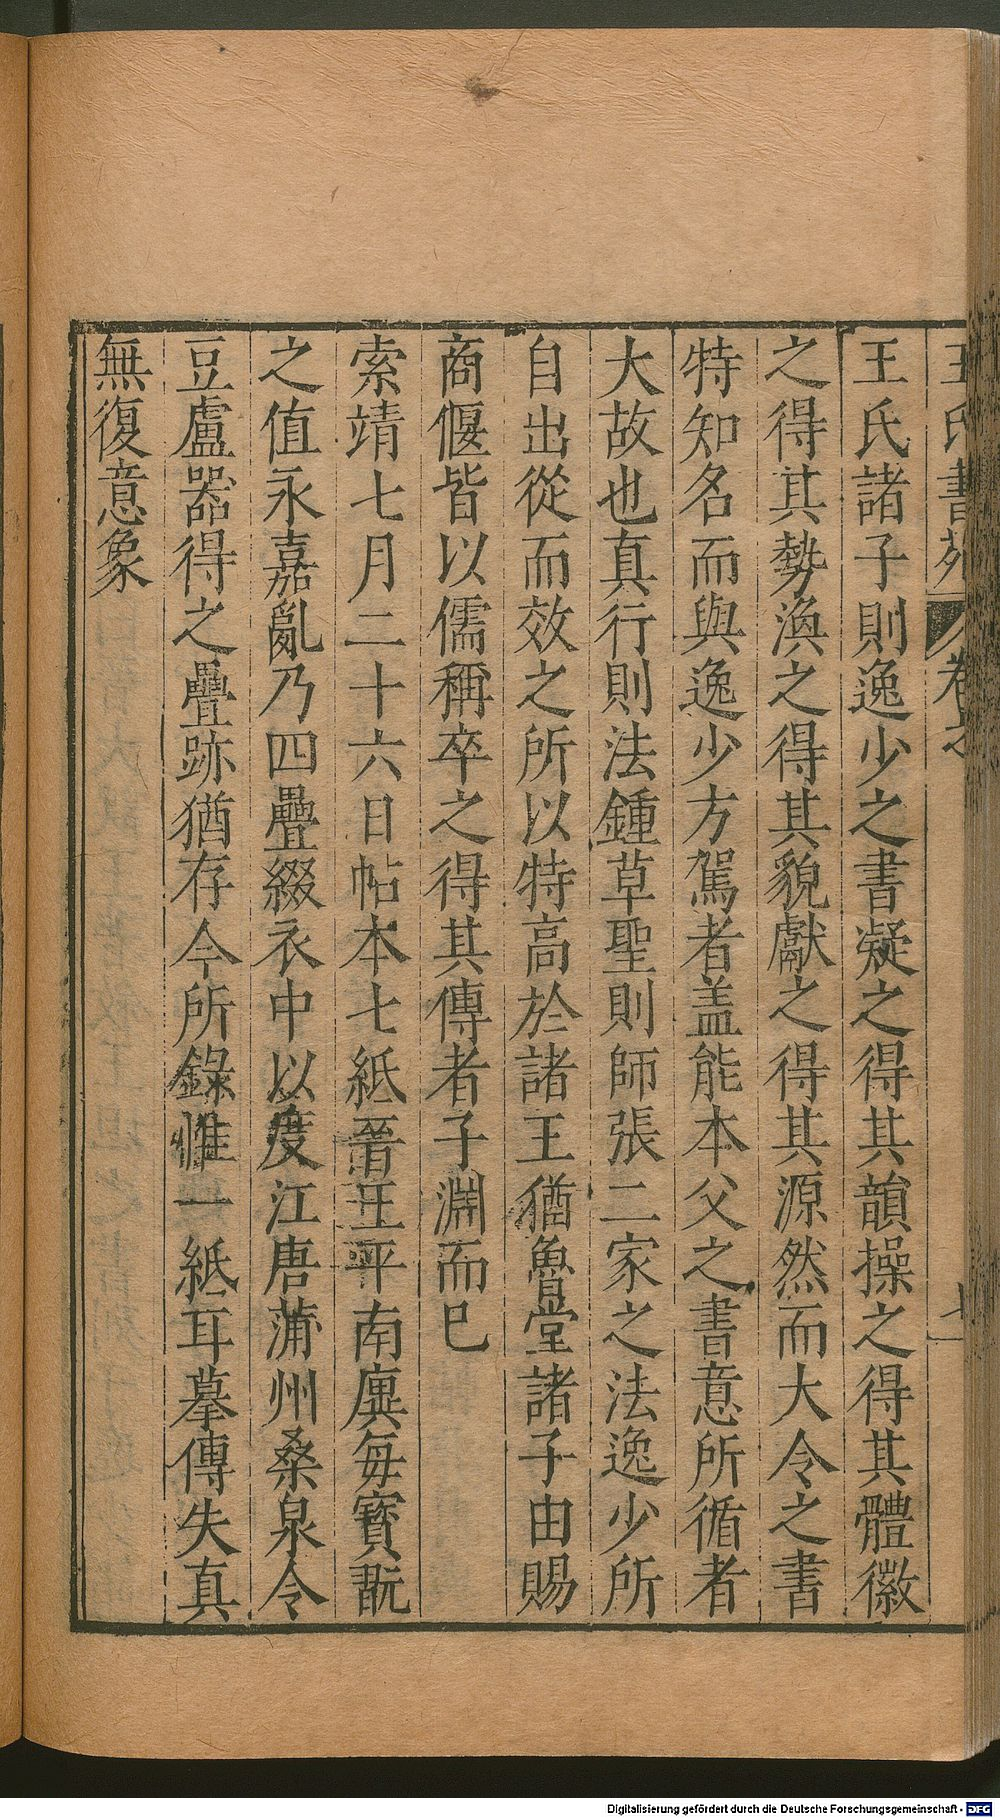 王氏書苑 卷之 七
王氏諸子則逸少之書凝之得其韻操之得其體徽
之得其勢渙之得其貌獻之得其源然而大令之書
特知名而與逸少方駕者盖能本父之書意所循者
大故也真行則法鍾草聖則師張二家之法逸少所
自出從而效之所以特高於諸王猶魯堂諸子由賜
商偃皆以儒稱卒之得其傳者子淵而已
索靖七月二十六日帖本七紙晉王平南廙每寳翫
之值永嘉亂乃四疊綴衣中以度江唐蒲州桑泉令
豆盧器得之疊跡猶存今所錄惟一紙耳摹傳失真
無復意象
Digitalisierung gefördert durch die Deutsche Forschungsgemeinschaft - DFG